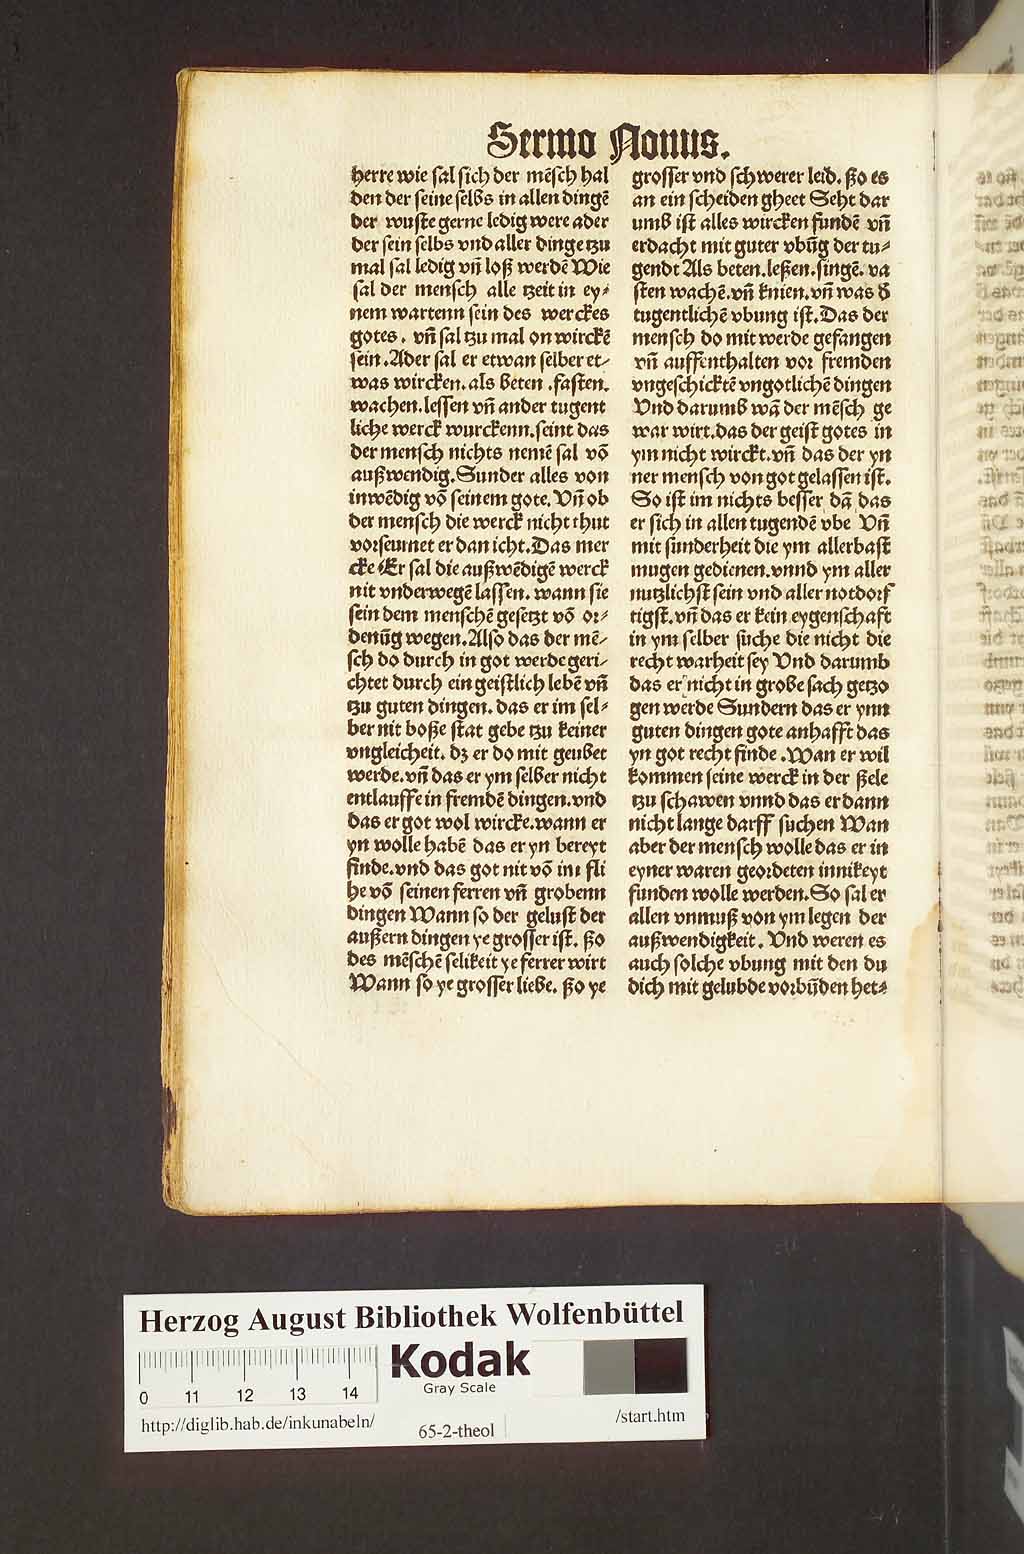 Sermo Nonus.
herre wie sal sich der mēsch hal
den der seine selbs in allen dingē
der wuste gerne ledig were ader
der sein selbs vnd aller dinge tzu
mal sal ledig vn̄ loß werdē Wie
sal der mensch alle tzeit in ey⸗
nem wartenn sein des werckes
gotes. vn̄ sal tzu mal on wirckē
sein. Ader sal er etwan selber et⸗
was wircken. als beten. fasten.
wachen. lessen vn̄ ander tugent
liche werck wurckenn. seint das
der mensch nichts nemē sal vō
außwendig. Sunder alles von
inwēdig vō seinem gote. Vn̄ ob
der mensch die werck nicht thut
vorseumet er dan icht. Das mer
cke Er sal die außwēdigē werck
nit vnderwegē lassen. wann sie
sein dem menschē gesetzt vō or⸗
denūg wegen. Also das der mē⸗
sch do durch in got werde geri⸗
chtet durch ein geistlich lebē vn̄
tzu guten dingen. das er im sel⸗
ber nit boße stat gebe tzu keiner
vngleicheit. dz er do mit geubet
werde. vn̄ das er ym selber nicht
entlauffe in fremdē dingen. vnd
das er got wol wircke. wann er
yn wolle habē das er yn bereyt
finde. vnd das got nit vō im fli
he vō seinen ferren vn̄ grobenn
dingen Wann so der gelust der
außern dingen ye grosser ist. ßo
des mēschē selikeit ye ferrer wirt
Wann so ye grosser liebe. ßo ye
grosser vnd schwerer leid. ßo es
an ein scheiden gheet Seht dar
umb ist alles wircken fundē vn̄
erdacht mit guter vbūg der tu⸗
gendt Als beten. leßen. singē. va
sten wachē. vn̄ knien. vn̄ was d̄
tugentlichē vbung ist. Das der
mensch do mit werde gefangen
vn̄ auffenthalten vor fremden
vngeschicktē vngotlichē dingen
Vnd darumb wā der mēsch ge
war wirt. das der geist gotes in
ym nicht wirckt. vn̄ das der yn
ner mensch von got gelassen ist.
So ist im nichts besser dā das
er sich in allen tugendē vbe Vn̄
mit sunderheit die ym allerbast
mugen gedienen. vnnd ym aller
nutzlichst sein vnd aller notdorf
tigst. vn̄ das er kein eygenschaft
in ym selber suche die nicht die
recht warheit sey Vnd darumb
das er nicht in grobe sach getzo
gen werde Sundern das er ynn
guten dingen gote anhafft das
yn got recht finde. Wan er wil
kommen seine werck in der ßele
tzu schawen vnnd das er dann
nicht lange darff suchen Wan
aber der mensch wolle das er in
eyner waren geordeten innikeyt
funden wolle werden. So sal er
allen vnmuß von ym legen der
außwendigkeit. Vnd weren es
auch solche vbung mit den du
dich mit gelubde vorbūden het⸗
Herzog August Bibliothek Wolfenbüttel
0 11 12 13 14
Kodak
Gray Scale
http://diglib.hab.de/inkunabeln/
65-2-theol
/start.htm